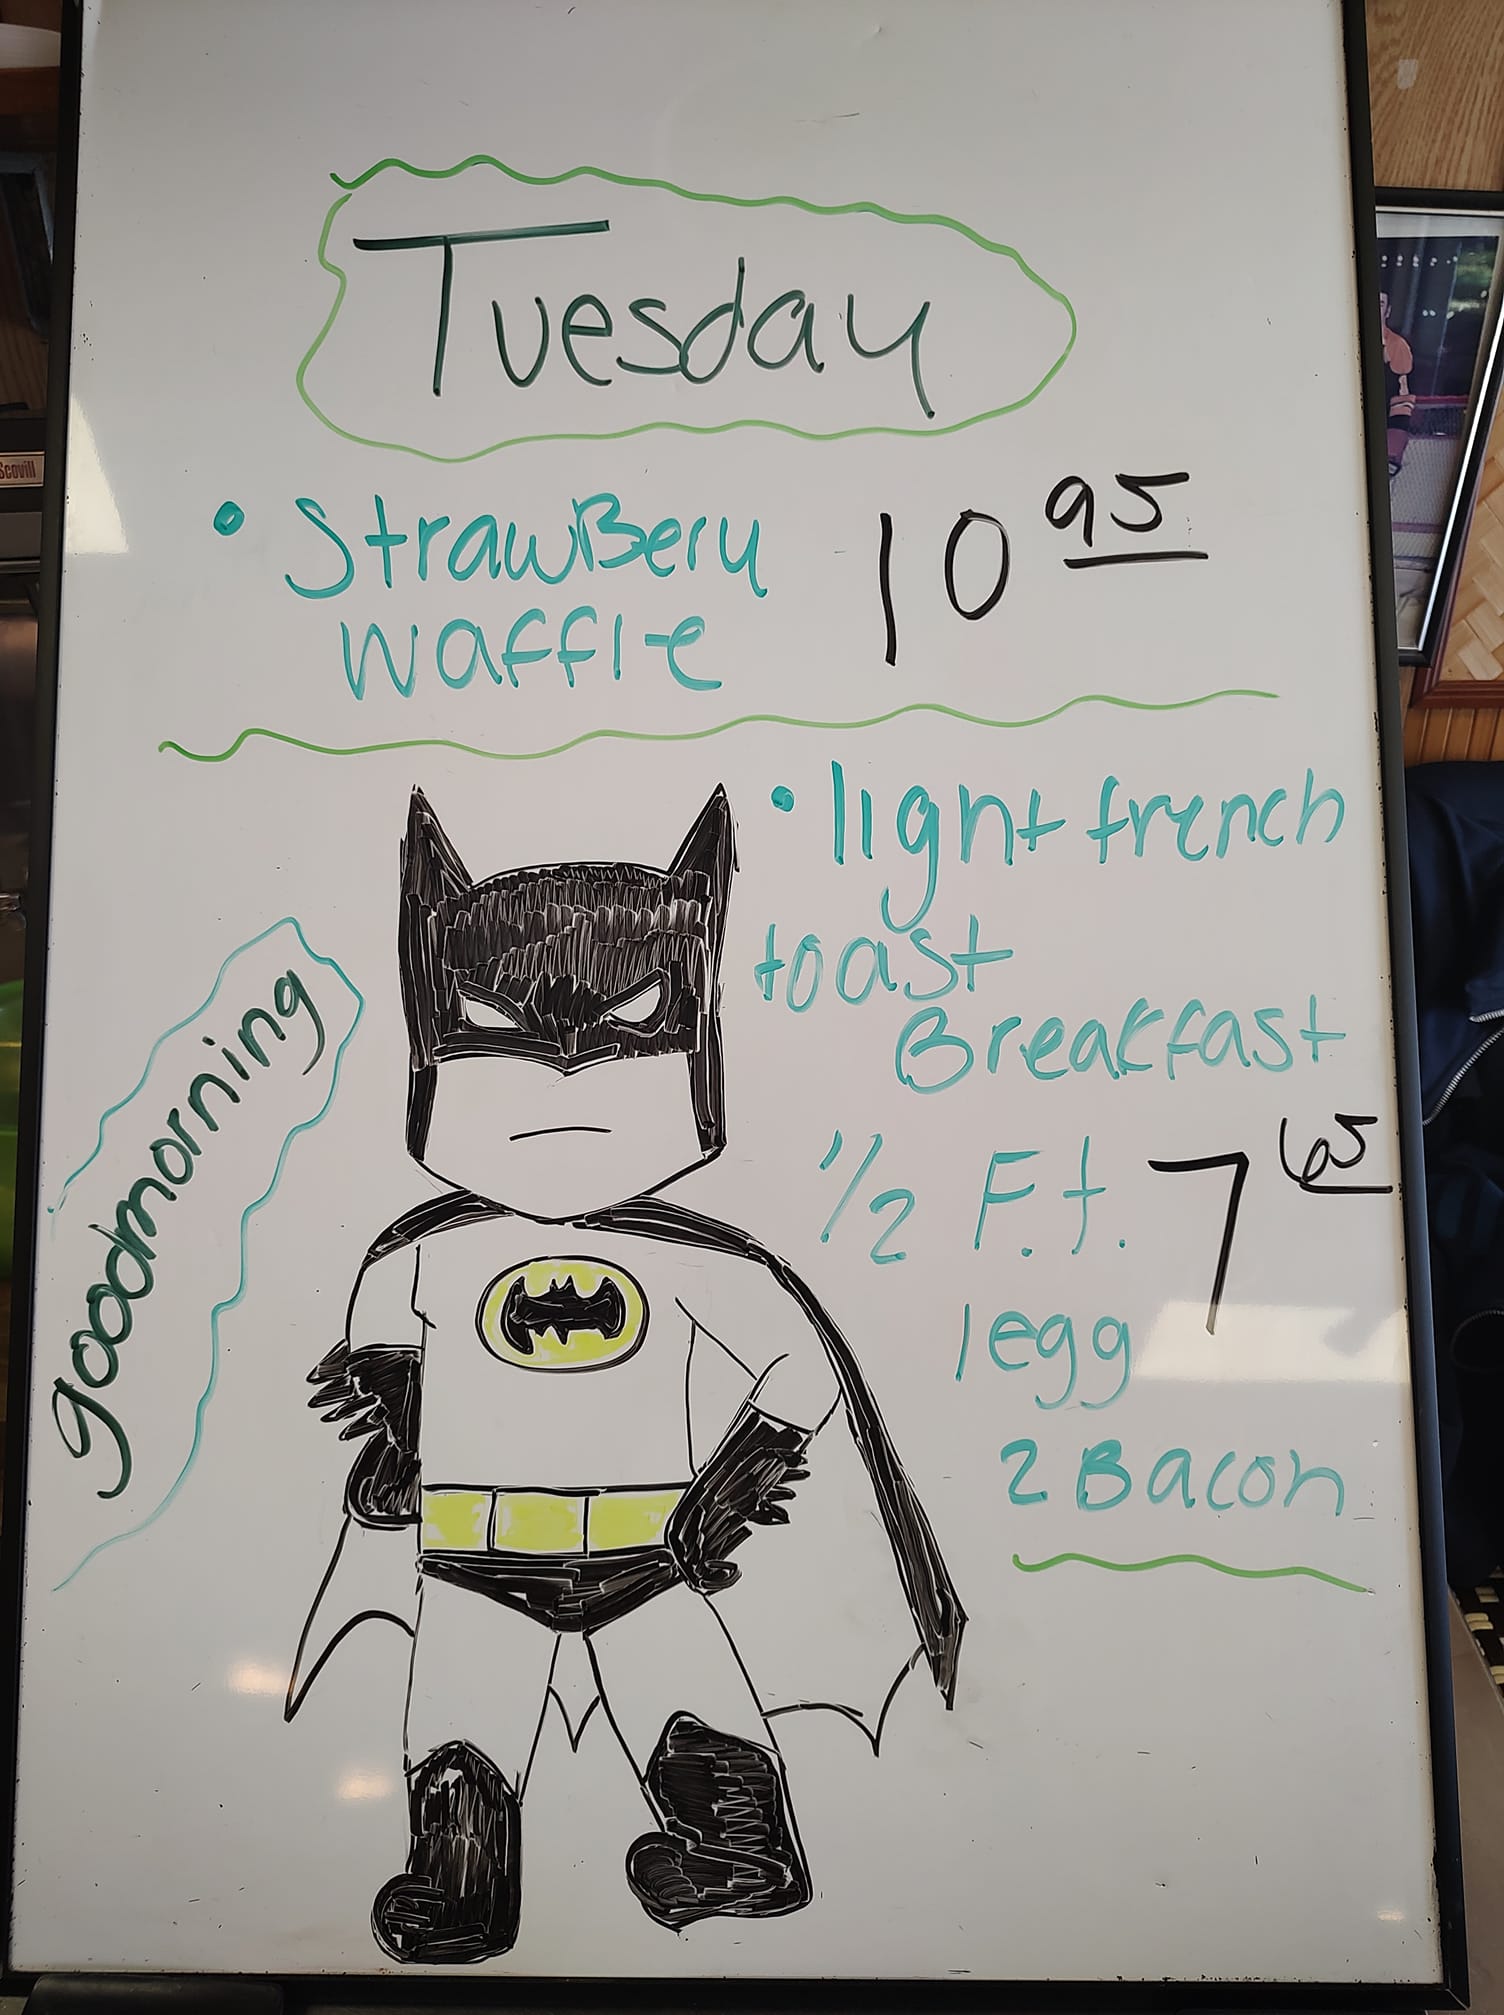 Tuesday
• StrawBery 10 95
waffle
• light french
toast
Breakfast
1/2 F.t. 7 65
1 egg
2 Bacon
goodmorning
Scovill